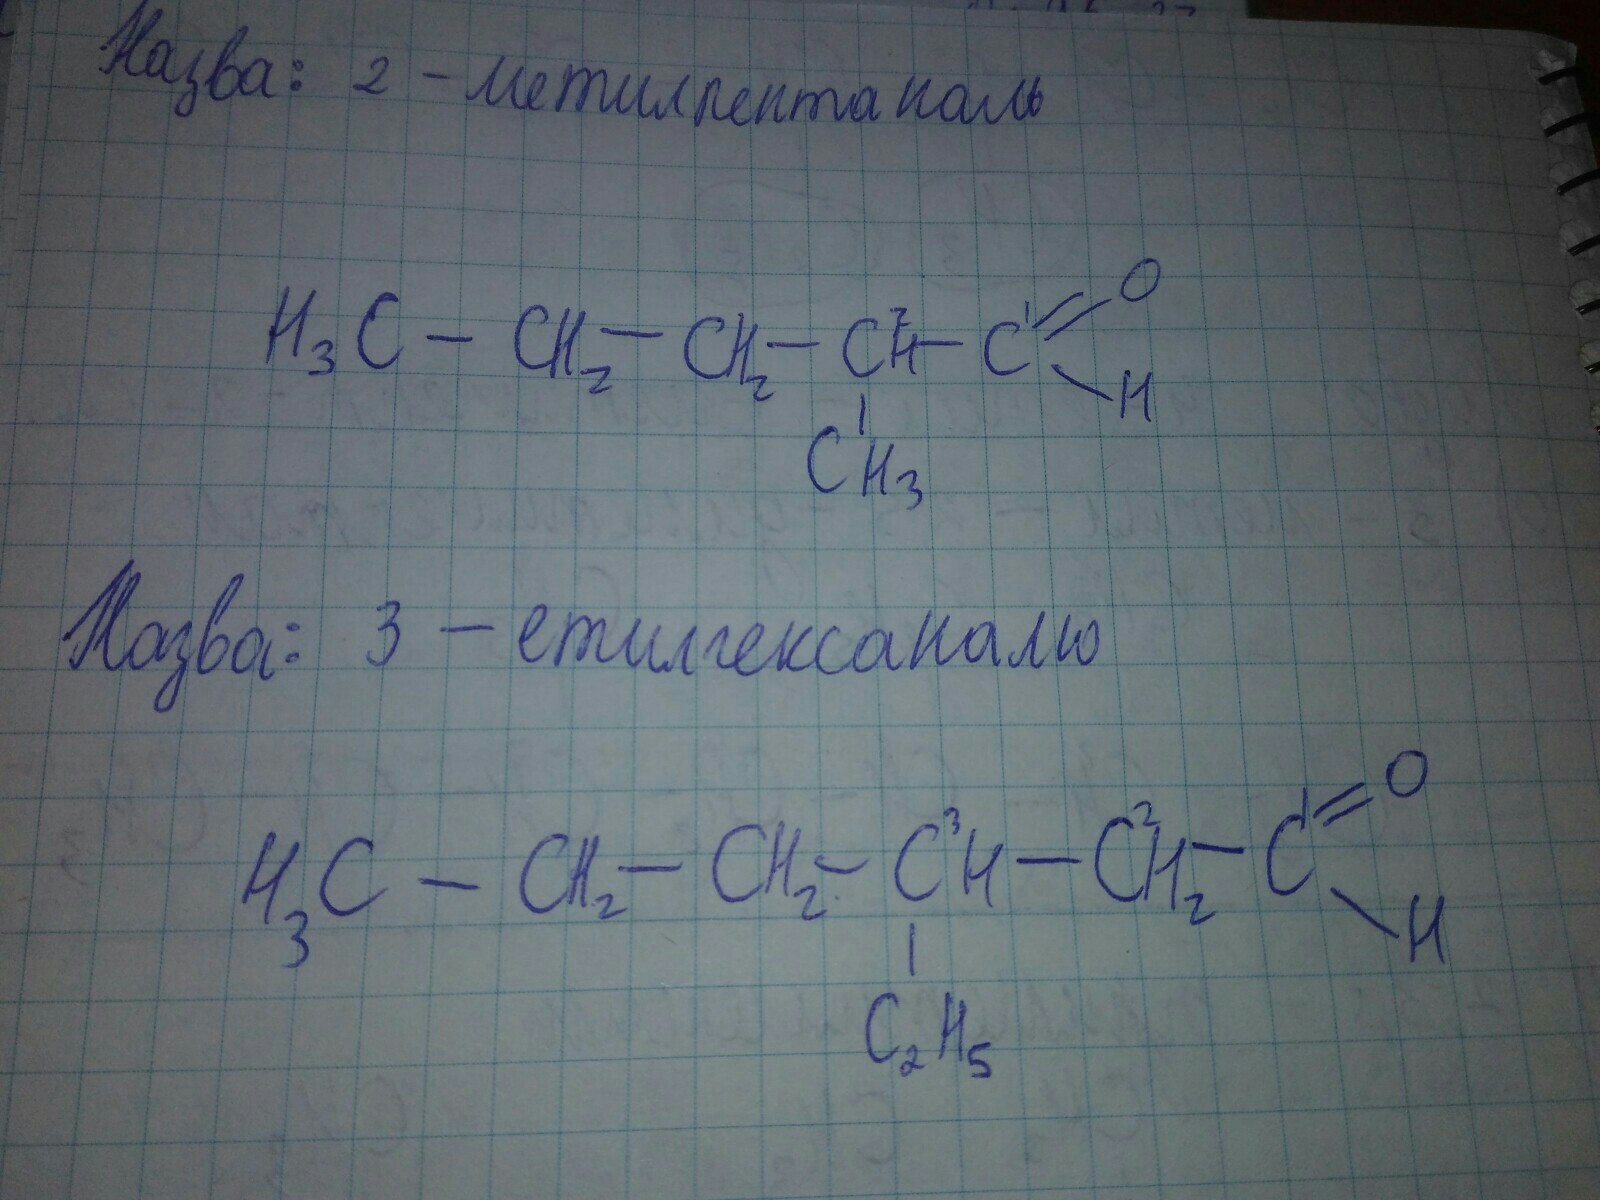 Назва: 2 - метилпентаналь
H₃C - CH₂ - CH₂ - C²H - C¹ = O
- H
CH₃
Назва: 3 - етилгексаналю
H₃C - CH₂ - CH₂ - C³H - C²H₂ - C¹ = O
- H
C₂H₅